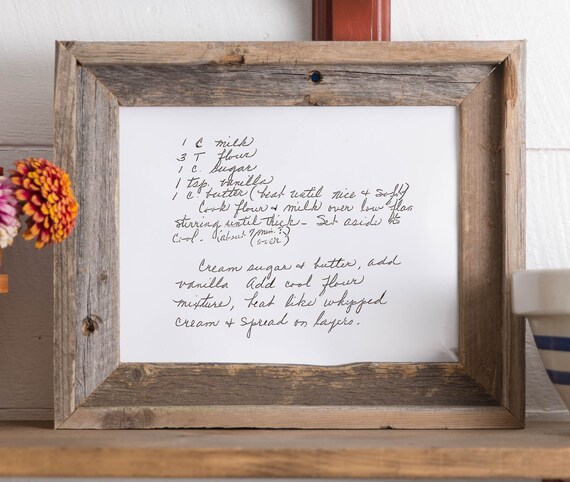 1 C milk
3 T flour
1 C. sugar
1 tsp. vanilla
1 C. butter (beat until nice & soft)
Cook flour & milk over low flam
stirring until thick - Set aside to
Cool. (about 7 min.?)
Cream sugar & butter, add
vanilla Add cool flour
mixture, beat like whipped
cream & spread on layers.